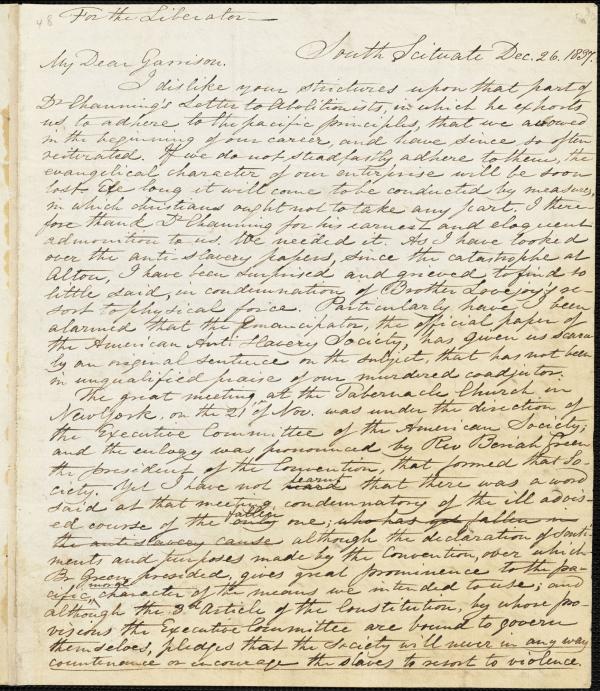 48
For the Liberator—
South Scituate Dec. 26. 1837.
My Dear Garrison.
I dislike your strictures upon that part of
Dr Channing's Letter to Abolitionists, in which he exhorts
us to adhere to the pacific principles, that we avowed
in the beginning of our career, and have since so often
reiterated. If we do not steadfastly adhere to them, the
evangelical character of our enterprise will be soon
lost. Ere long it will come to be conducted by measures,
in which christians ought not to take any part. I there
fore thank Dr Channing for his earnest and eloquent
admonition to us. We needed it. As I have looked
over the anti slavery papers, since the catastrophe at
Alton, I have been surprised and grieved to find so
little said, in condemnation of Brother Lovejoy's re-
sort to physical force. Particularly have I been
alarmed that the Emancipator, the official paper of
the American Anti Slavery Society, has given us scarce
by an original sentence on the subject, that has not been
in unqualified praise of our murdered coadjutor.
The great meeting at the Tabernacle Church in
New York, on the 21st of Nov. was under the direction of
the Executive Committee of the American Society;
and the eulogy was pronounced by Rev Beriah Green
the president of the Convention, that formed that So-
ciety. Yet I have not learnt that there was a word
said at that meeting condemnatory of the ill advis-
ed course of the fallen one; who has fallen in
the antislavery cause although the declaration of Senti-
ments and purposes made by the Convention, over which
Br Green presided, gives great prominence to the pa-
cific, moral character of the means we intended to use; and
although the 3rd Article of the Constitution, by whose pro-
visions the Executive Committee are bound to govern
themselves, pledges that the Society will never in any way
countenance or encourage the slaves to resort to violence.